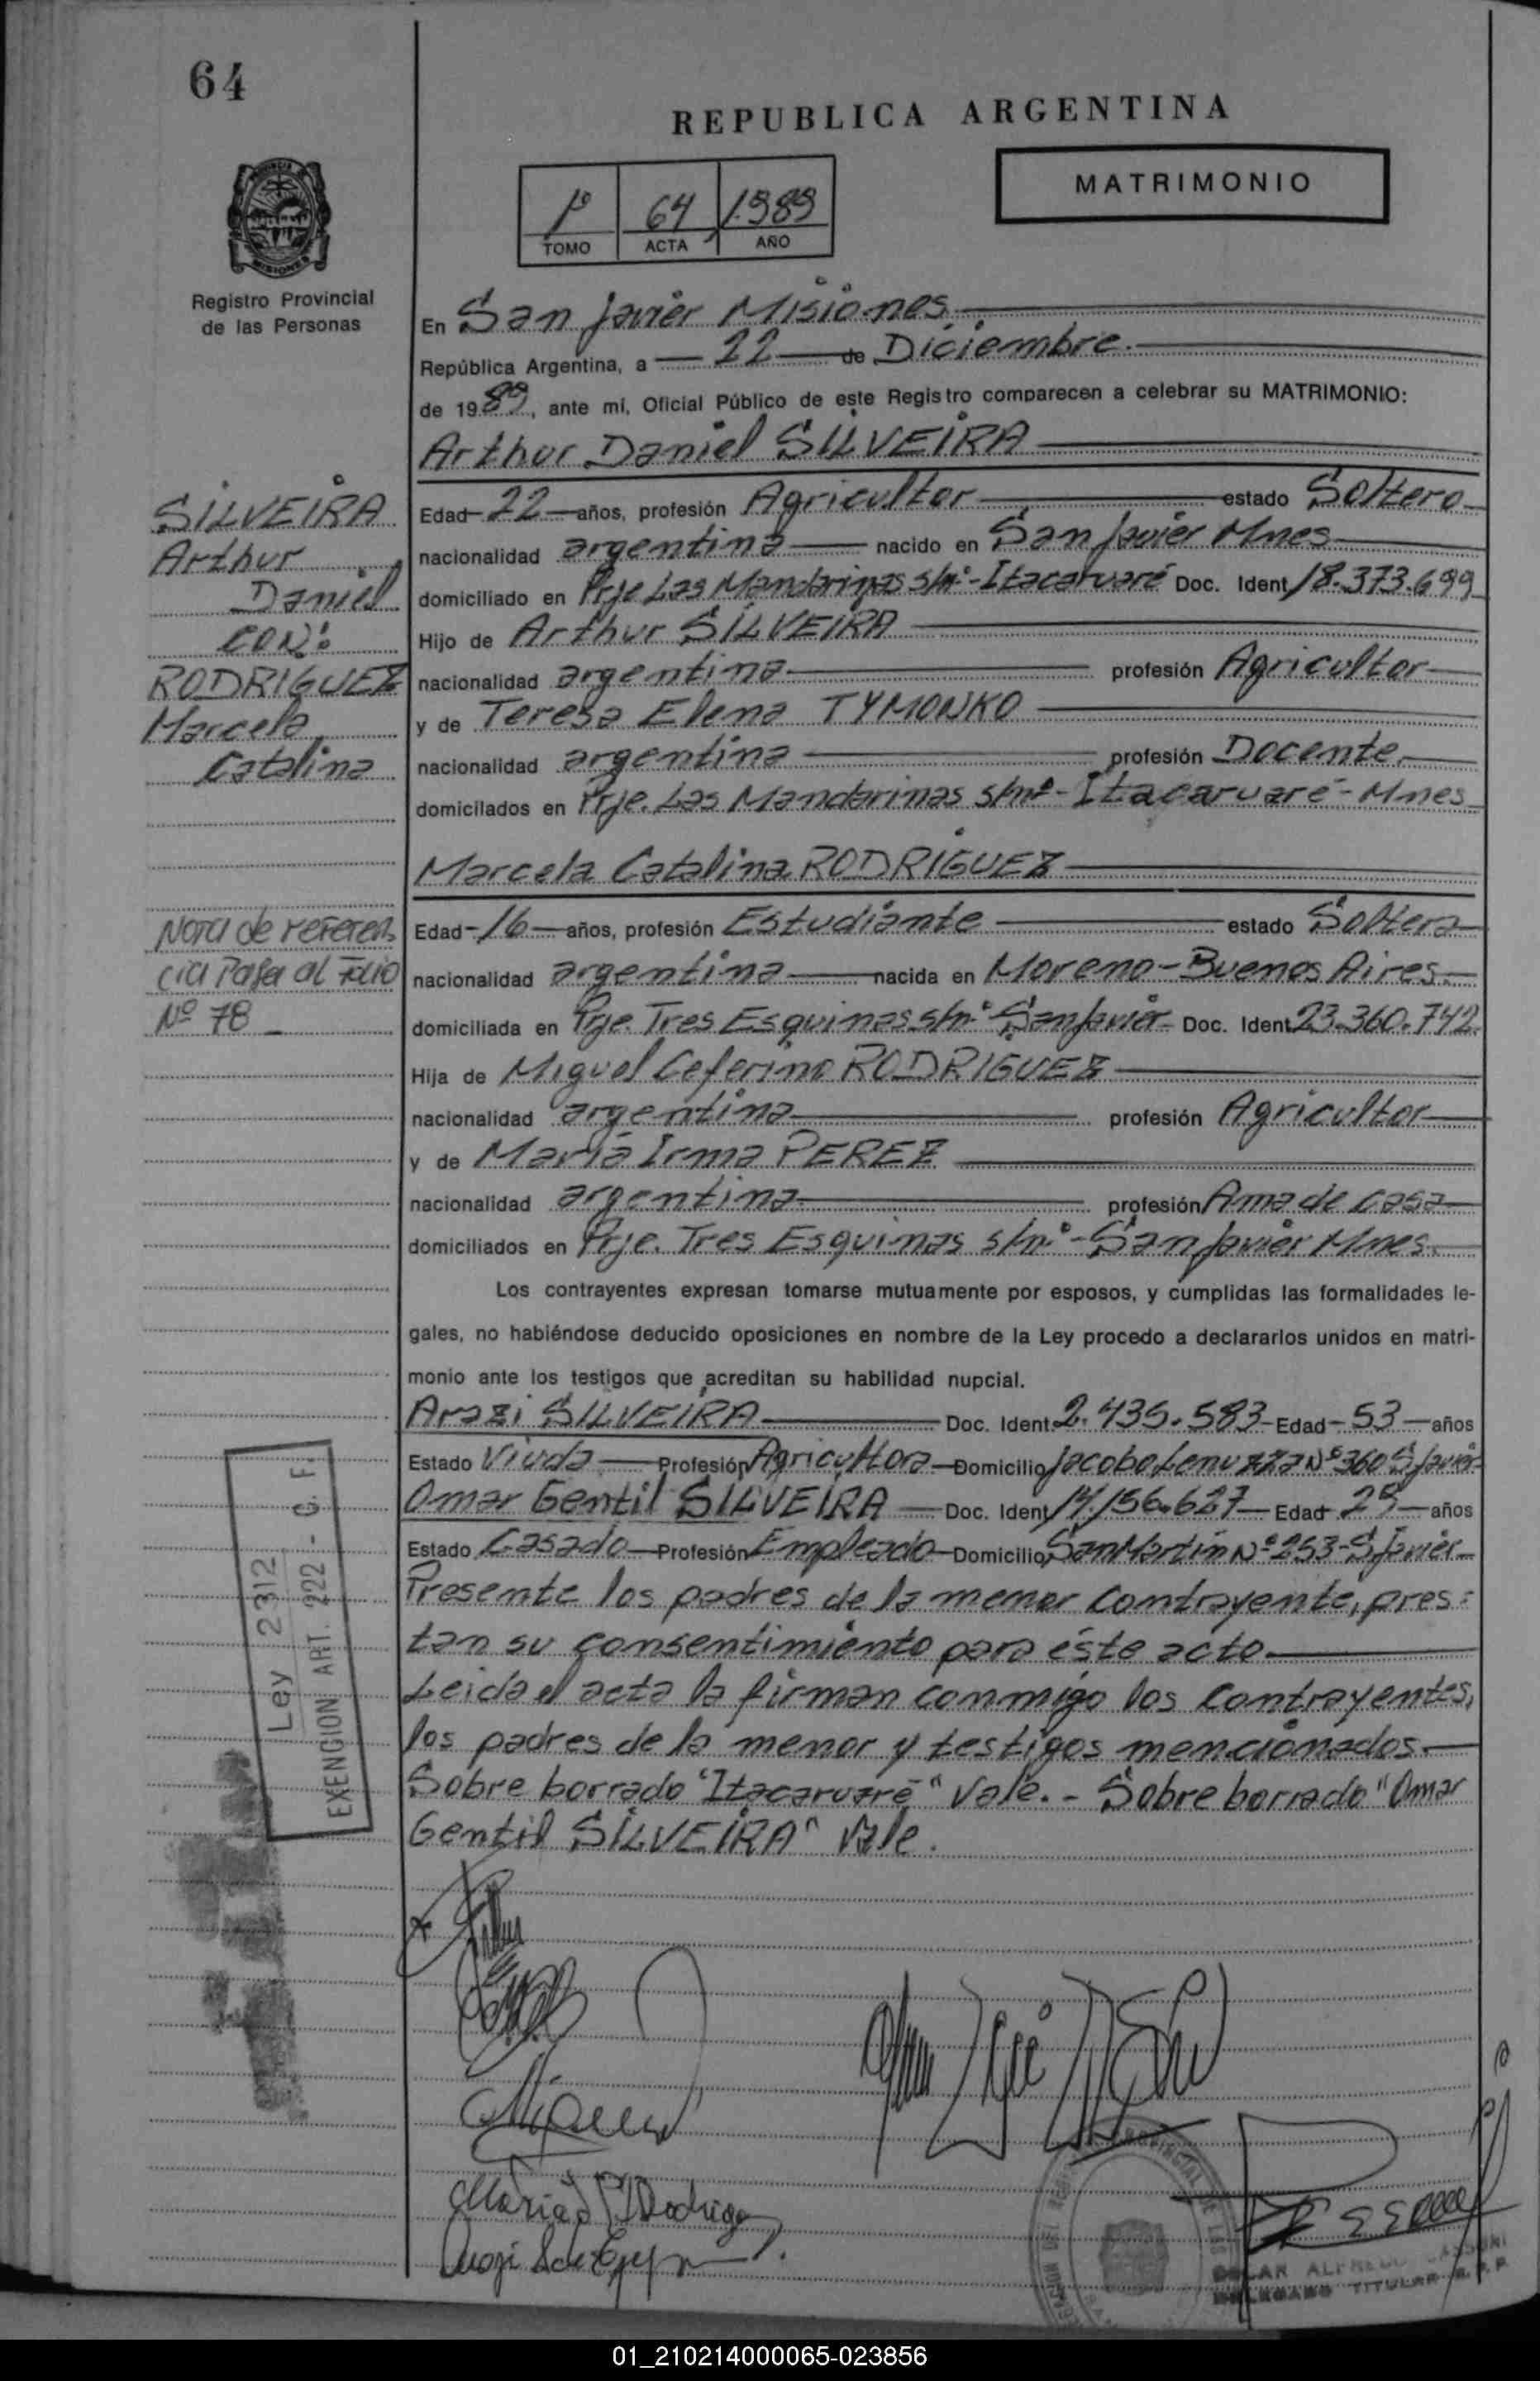 64
REPUBLICA ARGENTINA
MATRIMONIO
1º 64 1.989
TOMO ACTA AÑO
PROVINCIA DE
MISIONES
Registro Provincial
de las Personas
En San Javier Misiones
República Argentina, a 22 de Diciembre.
de 1989, ante mí, Oficial Público de este Registro comparecen a celebrar su MATRIMONIO:
Arthur Daniel SILVEIRA
SILVEIRA
Arthur
Daniel
CON:
RODRIGUEZ
Marcela
Catalina
Edad 22 años, profesión Agricultor estado Soltero
nacionalidad argentina nacido en San Javier Mnes
domiciliado en Prje Las Mandarinas s/nº - Itacaruaré Doc. Ident 18.373.699
Hijo de Arthur SILVEIRA
nacionalidad argentina profesión Agricultor
y de Teresa Elena TYMONKO
nacionalidad argentina profesión Docente
domicilados en Prje. Las Mandarinas s/nº - Itacaruaré - Mnes
Marcela Catalina RODRIGUEZ
Nota de referen
cia Pasa al Folio
Nº 78
Edad 16 años, profesión Estudiante estado Soltera
nacionalidad argentina nacida en Moreno - Buenos Aires.
domiciliada en Prje. Tres Esquinas s/nº San Javier Doc. Ident 23.360.742
Hija de Miguel Ceferino RODRIGUEZ
nacionalidad argentina profesión Agricultor
y de María Irma PEREZ
nacionalidad argentina profesión Ama de casa
domiciliados en Prje. Tres Esquinas s/nº - San Javier Mnes.
Los contrayentes expresan tomarse mutuamente por esposos, y cumplidas las formalidades le-
gales, no habiéndose deducido oposiciones en nombre de la Ley procedo a declararlos unidos en matri-
monio ante los testigos que acreditan su habilidad nupcial.
Arazi SILVEIRA Doc. Ident. 2.435.583 Edad 53 años
Estado Viuda Profesión Agricultora Domicilio Jacobo Lenuzza Nº 360 S Javier
Omar Gentil SILVEIRA Doc. Ident 14.156.627 Edad 29 años
Estado Casado Profesión Empleado Domicilio San Martín Nº 253 - S Javier
Presente los padres de la menor contrayente, pres=
tan su consentimiento para éste acto.
Leida el acta la firman conmigo los contrayentes,
los padres de la menor y testigos mencionados.
Sobre borrado "Itacaruaré" Vale. - Sobre borrado "Omar
Gentil SILVEIRA" Vale.
Ley 2312
EXENCION ART. 222 - C. F.
Maria I Rodrigez
TITULAR R. P. P.
01_210214000065-023856